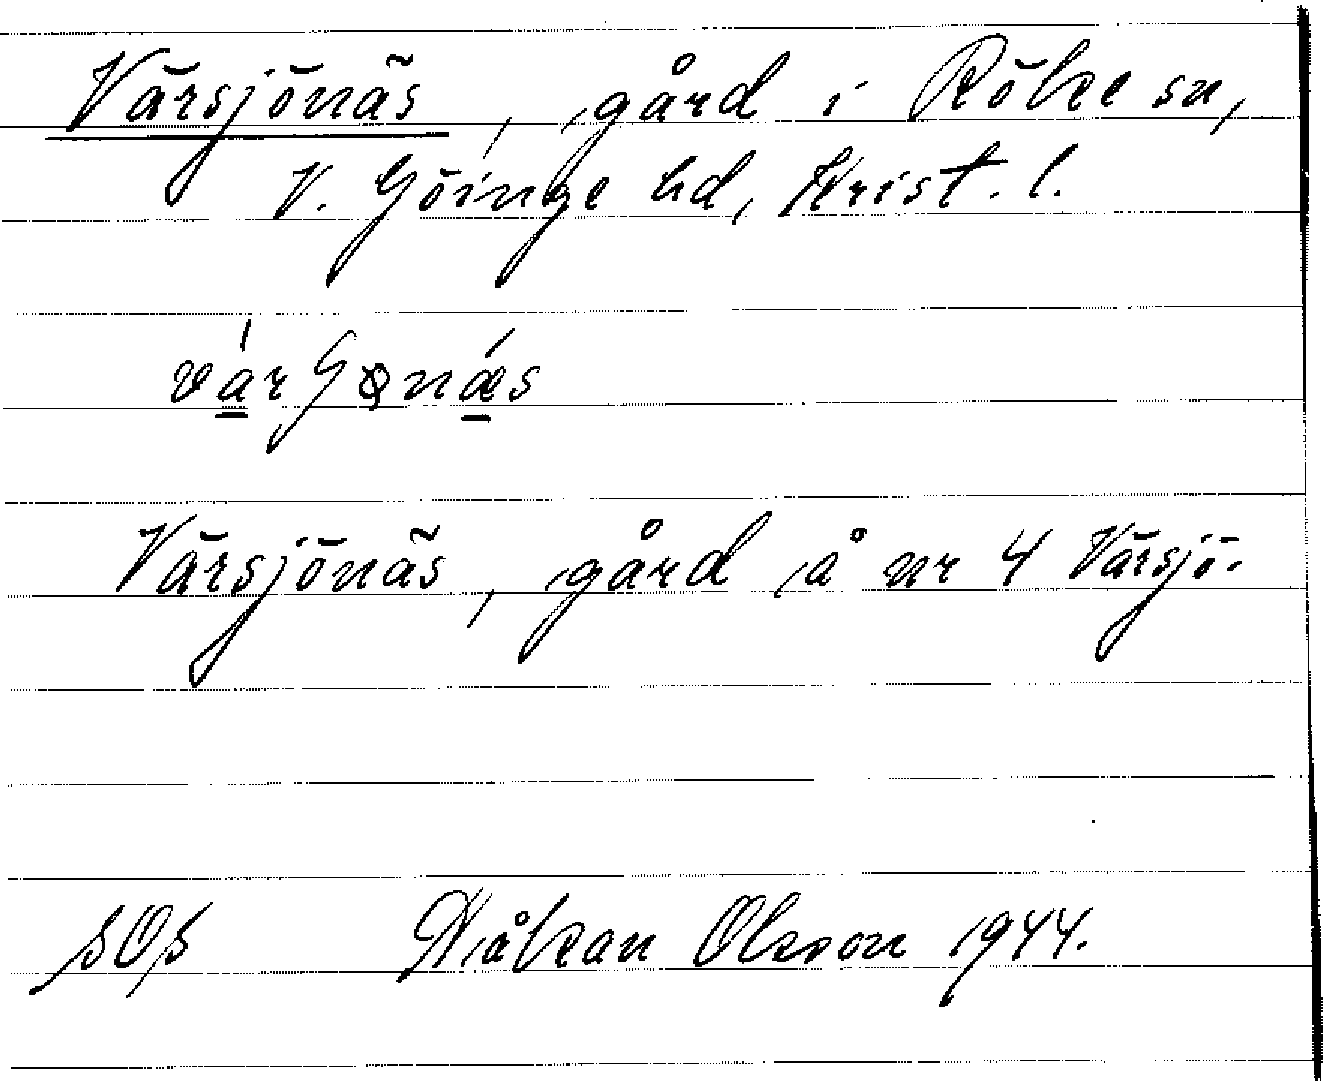 Värsjönäs, gård i Röke sn,
V. Göinge hd, Krist. l.
Värsjönäs, gård å nr 4 Värsjö.
SOS Håkan Olsson 1944.